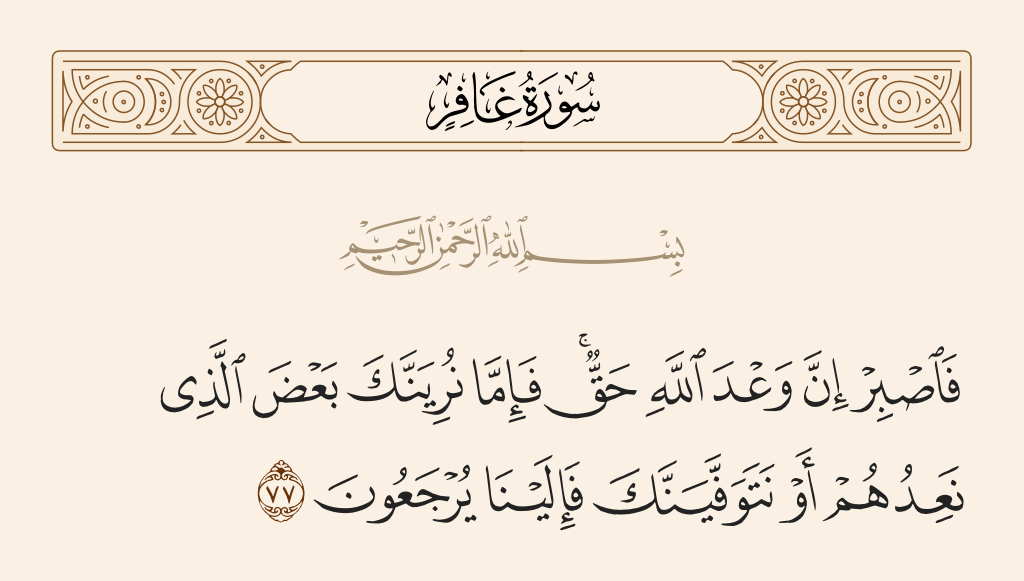 سُورَةُ غَافِرٍ
بِسْمِ ٱللَّهِ ٱلرَّحْمَٰنِ ٱلرَّحِيمِ
فَٱصْبِرْ إِنَّ وَعْدَ ٱللَّهِ حَقٌّ ۚ فَإِمَّا نُرِيَنَّكَ بَعْضَ ٱلَّذِى
نَعِدُهُمْ أَوْ نَتَوَفَّيَنَّكَ فَإِلَيْنَا يُرْجَعُونَ ٧٧